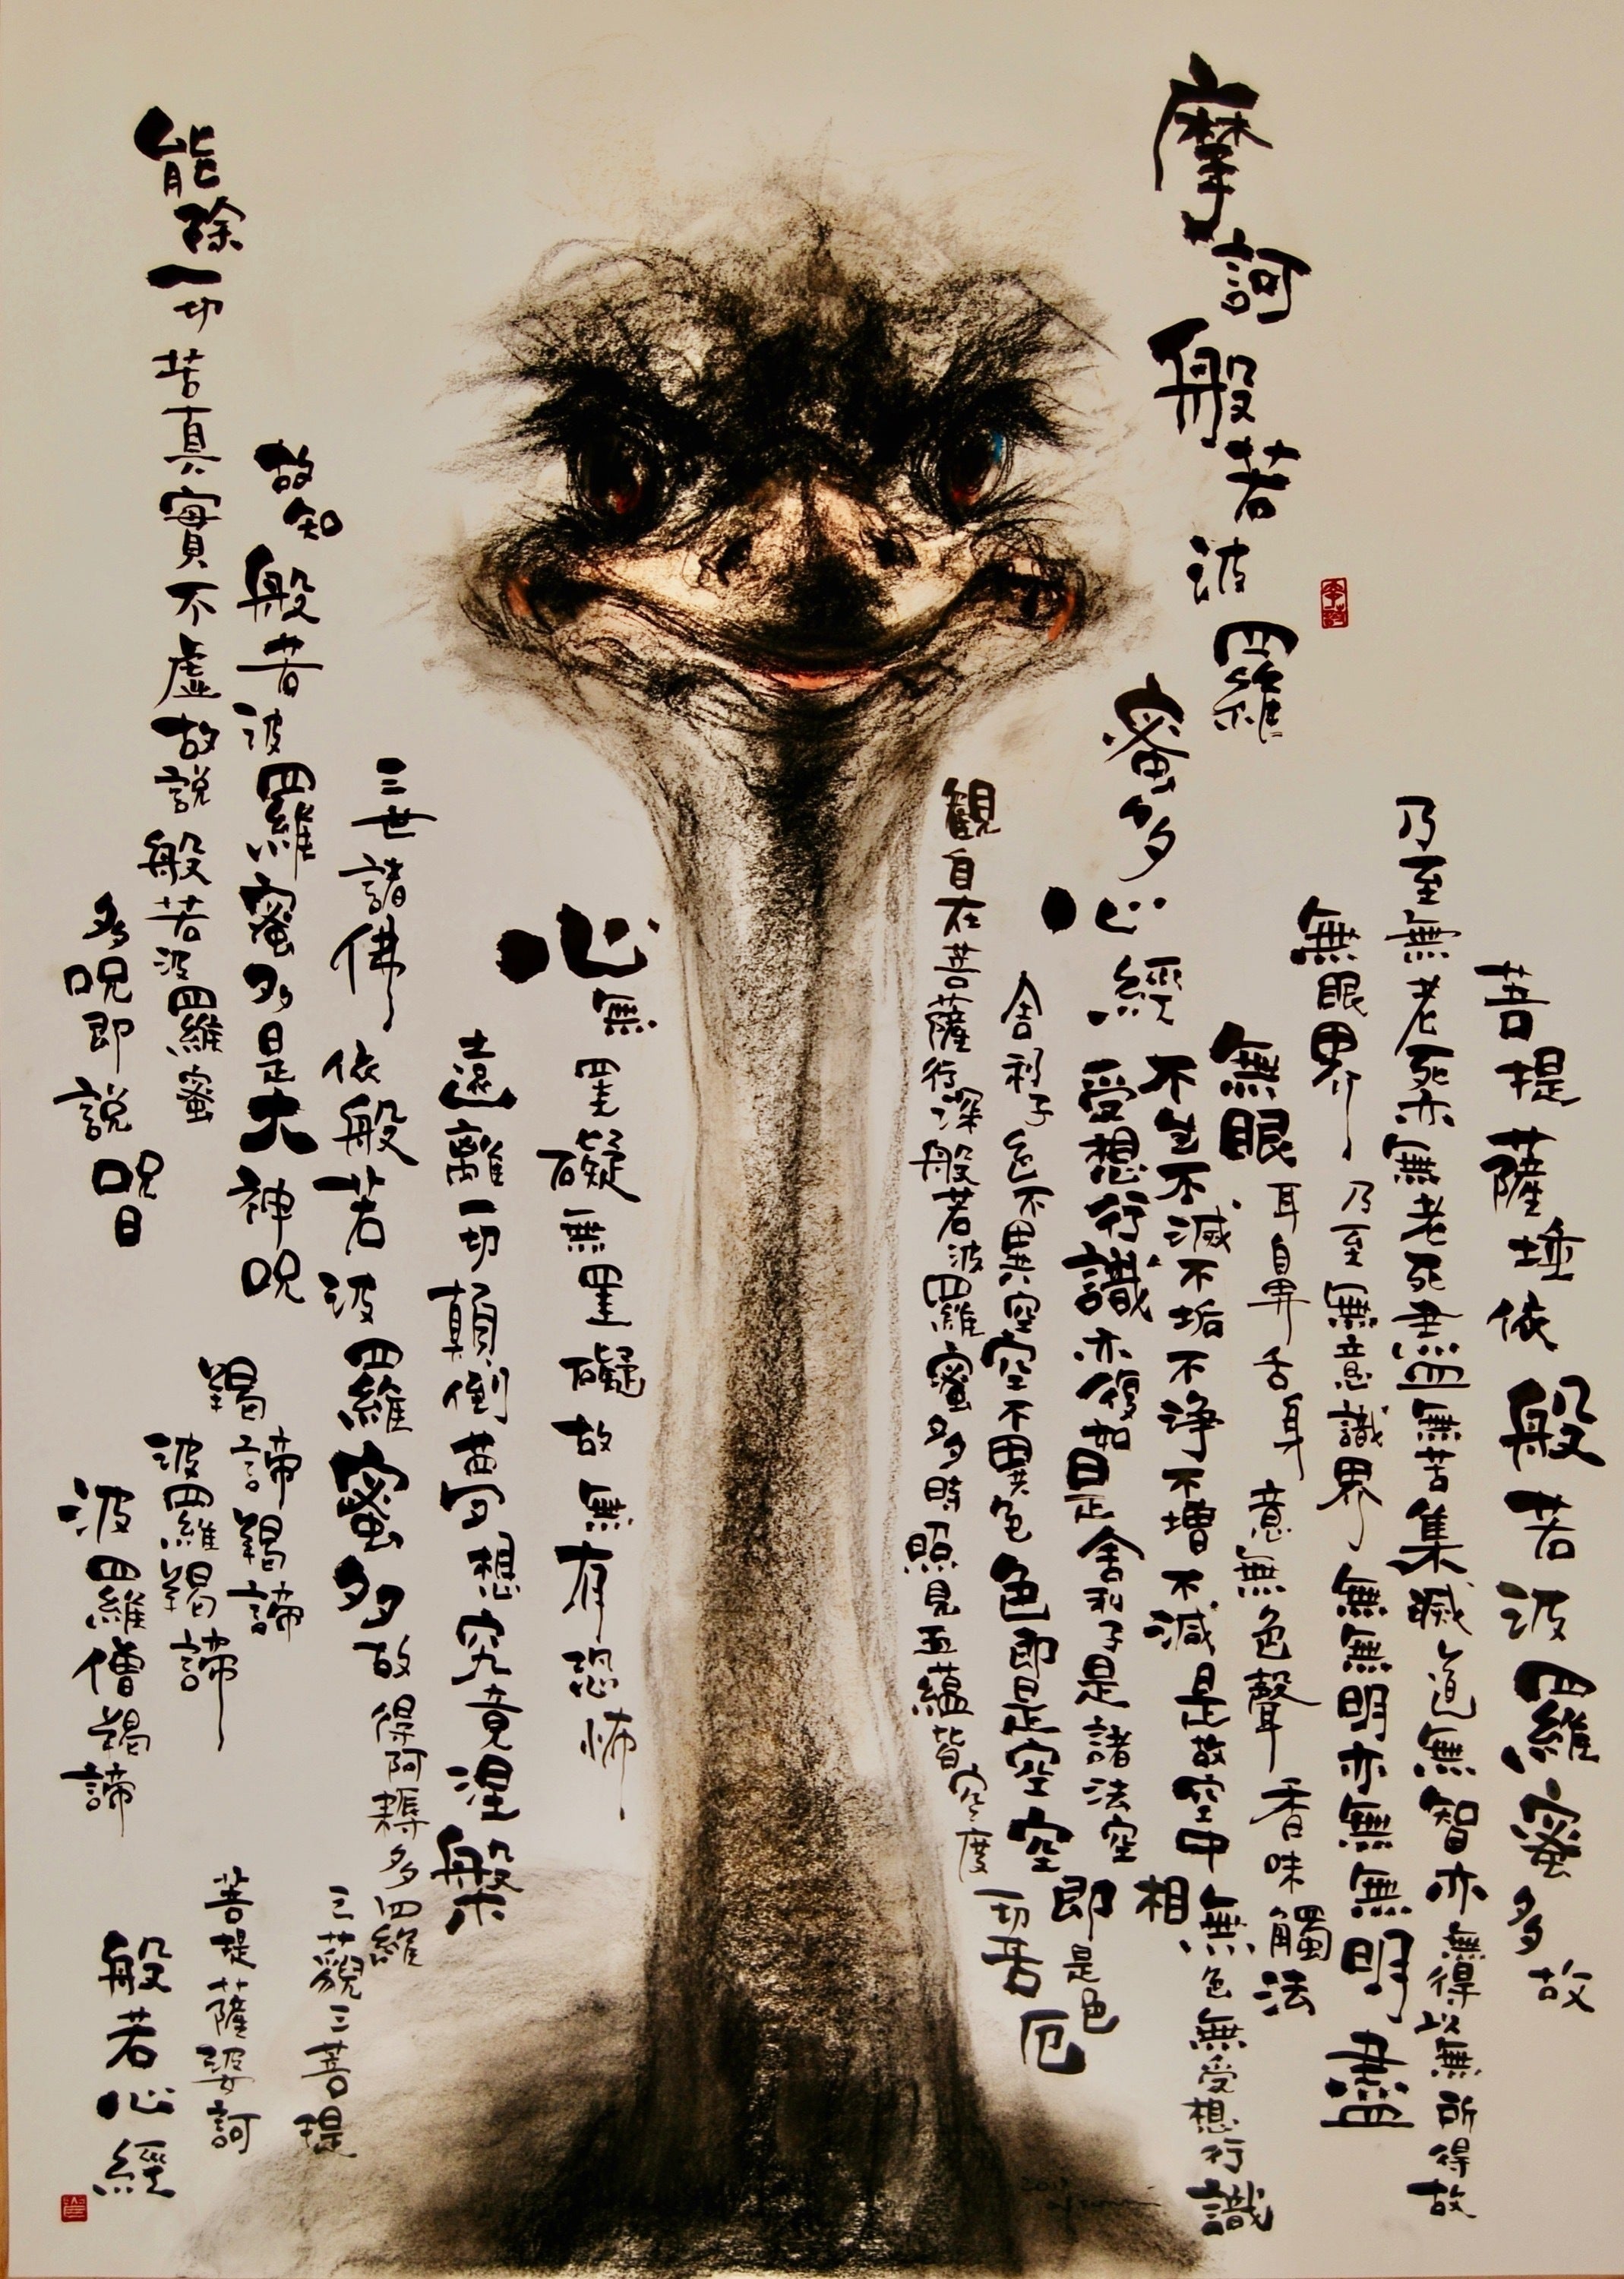 摩訶般若波羅蜜多心經
観自在菩薩行深般若波羅蜜多時照見五蘊皆空度一切苦厄
舍利子色不異空空不異色色即是空空即是色
受想行識亦復如是舍利子是諸法空相
不生不滅不垢不浄不増不減是故空中無色無受想行識
無眼耳鼻舌身意無色聲香味觸法
無眼界乃至無意識界無無明亦無無明盡
乃至無老死亦無老死盡無苦集滅道無智亦無得以無所得故
菩提薩埵依般若波羅蜜多故
心無罣礙無罣礙故無有恐怖
遠離一切顛倒夢想究竟涅槃
三世諸佛依般若波羅蜜多故得阿耨多羅三藐三菩提
故知般若波羅蜜多是大神呪
能除一切苦真實不虛故説般若波羅蜜多呪即説呪曰
羯諦羯諦
波羅羯諦
波羅僧羯諦
菩提薩婆訶
般若心經